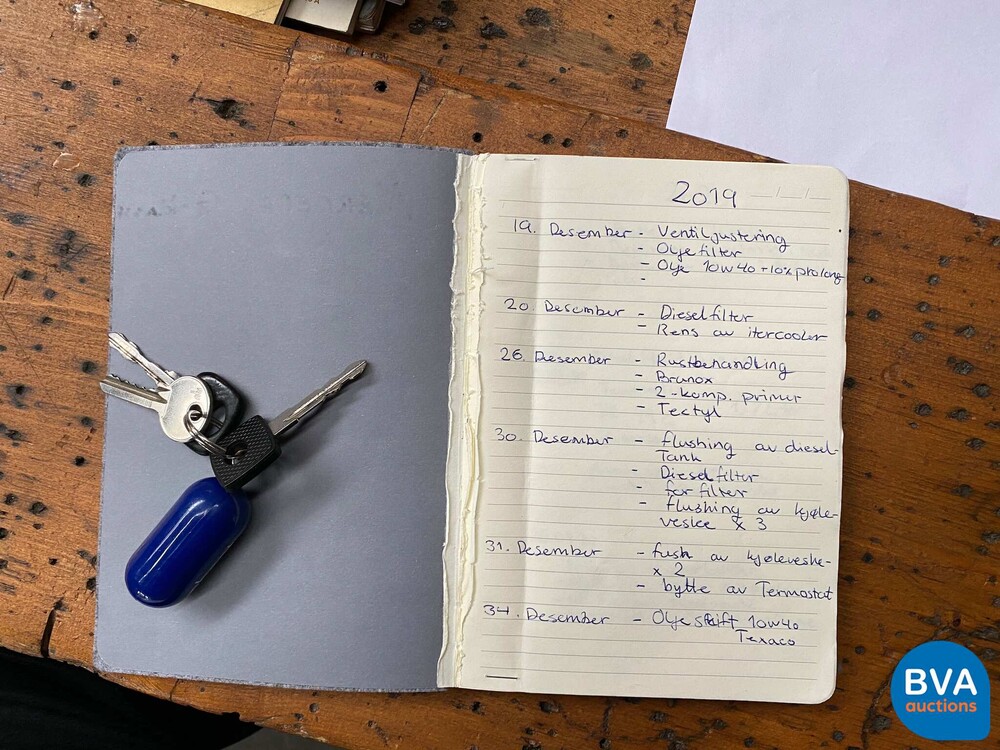 2019
19. Desember - Ventiljustering
- Oljefilter
- Olje 10w40 + 10% prolong
-
20. Desember - Dieselfilter
- Rens av itercooler
26. Desember - Rustbehandling
- Brunox
- 2-komp. primer
- Tectyl
30. Desember - flushing av diesel-
Tank
- Dieselfilter
- for filter
- flushing av kjøle-
veske x 3
31. Desember - flush av kjøleveske-
x 2
- bytte av Termostat
34. Desember - Olje skift 10w40
Texaco
BVA
auctions